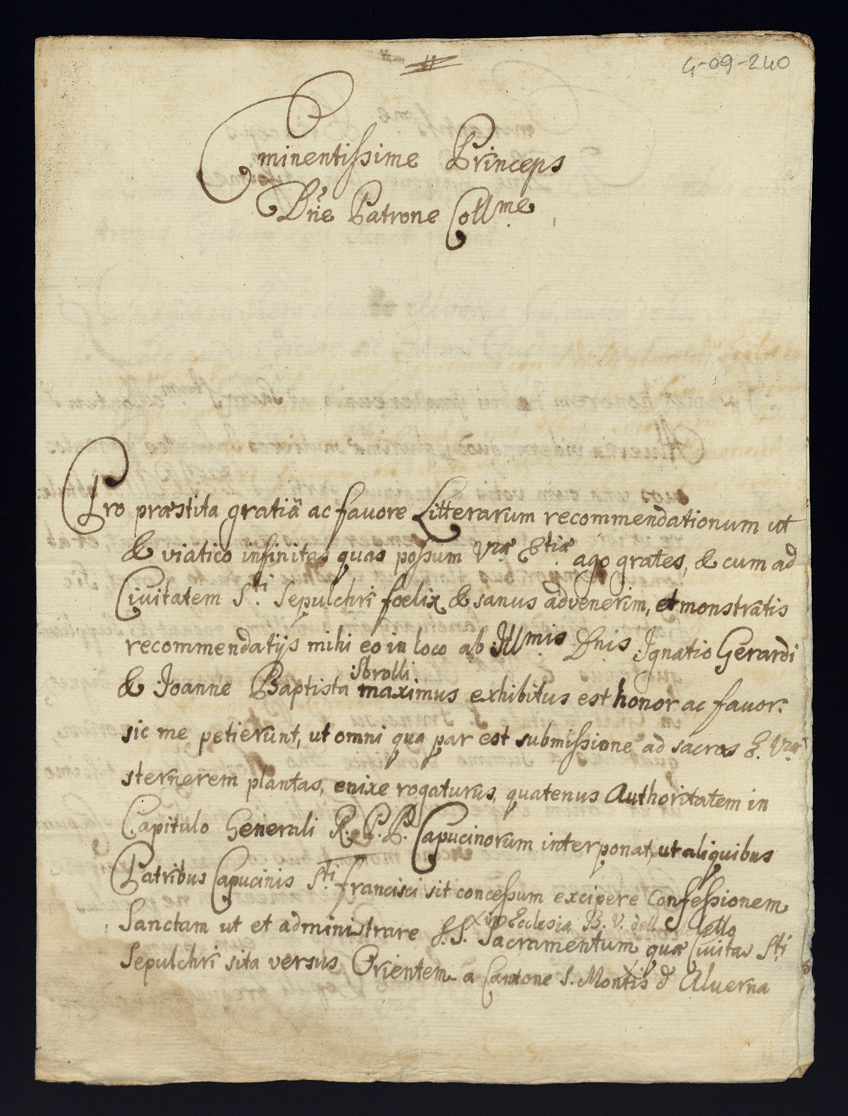 4-09-240
Eminentissime Princeps
Dn̄e Patrone Coll.me
Pro præstita gratiâ ac favore Litterarum recommendationum ut
& viatico infinitas quas possum Vræ Etiæ ago grates, & cum ad
Civitatem S.ti Sepulchri fœlix & sanus advenerim, et monstratis
recommendatijs mihi eo in loco ab Ill.mis Dnis Ignatio Gerardi
& Joanne Baptista Sbrolli maximus exhibitus est honor ac favor:
sic me petierunt, ut omni qua par est submissione ad sacras E. Vræ
sternerem plantas, enixe rogaturus, quatenus Authoritatem in
Capitulo Generali R. P. P. Capucinorum interponat, ut aliquibus
Patribus Capucinis S.ti Francisci sit concessum excipere Confessionem
Sanctam ut et administrare S.S. Sacramentum in Ecclesia B. V. dell quæ Civitas S.ti
Sepulchri sita versus Orientem a Cantone S. Montis d Aluerna